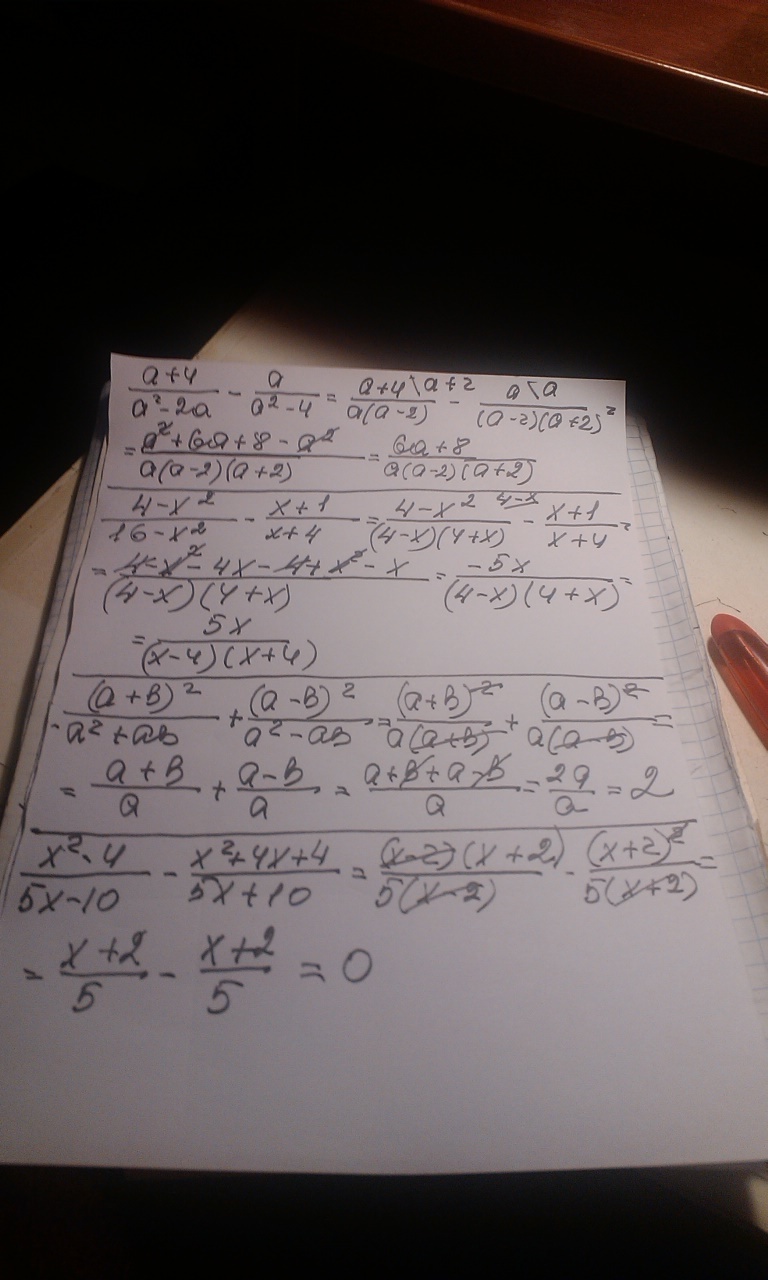 (a+4)/(a²-2a) - a/(a²-4) = (a+4\a+2)/(a(a-2)) - (a\a)/((a-2)(a+2)) =
= (a²+6a+8-a²)/(a(a-2)(a+2)) = (6a+8)/(a(a-2)(a+2))
(4-x²)/(16-x²) - (x+1)/(x+4) = (4-x²)/((4-x)(4+x)) - (4-x\x+1)/(x+4) =
= (4-x²-4x-4+x²-x)/((4-x)(4+x)) = (-5x)/((4-x)(4+x)) =
= 5x/((x-4)(x+4))
(a+b)²/(a²+ab) + (a-b)²/(a²-ab) = (a+b)²/(a(a+b)) + (a-b)²/(a(a-b)) =
= (a+b)/a + (a-b)/a = (a+b+a-b)/a = 2a/a = 2
(x²-4)/(5x-10) - (x²+4x+4)/(5x+10) = ((x-2)(x+2))/(5(x-2)) - (x+2)²/(5(x+2)) =
= (x+2)/5 - (x+2)/5 = 0